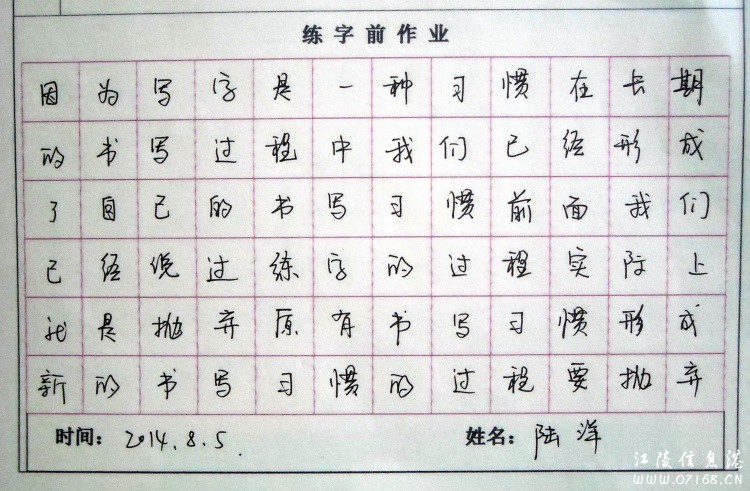 练字前作业
因为写字是一种习惯在长期
的书写过程中我们已经形成
了自己的书写习惯前面我们
已经说过练字的过程实际上
就是抛弃原有书写习惯形成
新的书写习惯的过程要抛弃
时间: 2014.8.5. 姓名: 陆洋
江陵信息港
WWW.07168.CN